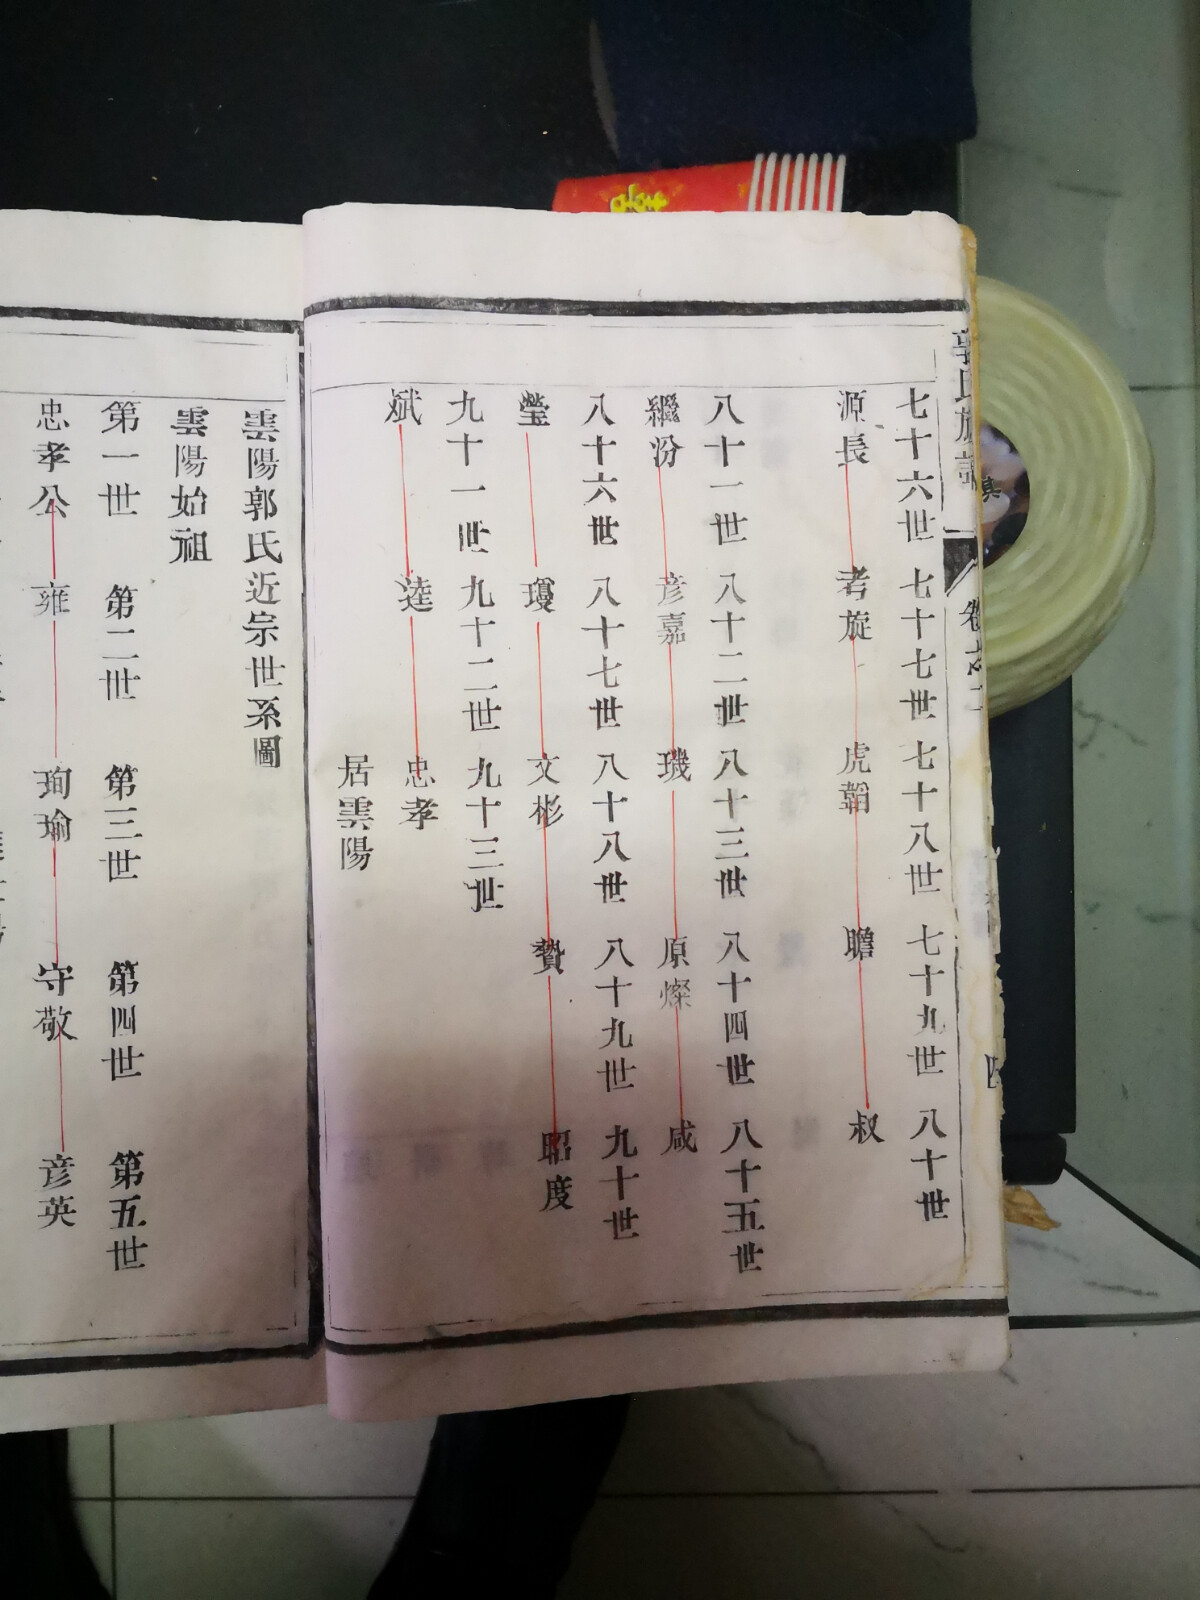 郭氏族譜
卷之二
四
七十六世 七十七世 七十八世 七十九世 八十世
源長 考旋 虎韜 瞻 叔
八十一世 八十二世 八十三世 八十四世 八十五世
繼汾 彦嘉 璣 原燦 咸
八十六世 八十七世 八十八世 八十九世 九十世
瑩 瓊 文彬 贊 昭度
九十一世 九十二世 九十三世
斌 逵 忠孝
居雲陽
雲陽郭氏近宗世系圖
雲陽始祖
第一世 第二世 第三世 第四世 第五世
忠孝公 雍 珣瑜 守敬 彦英